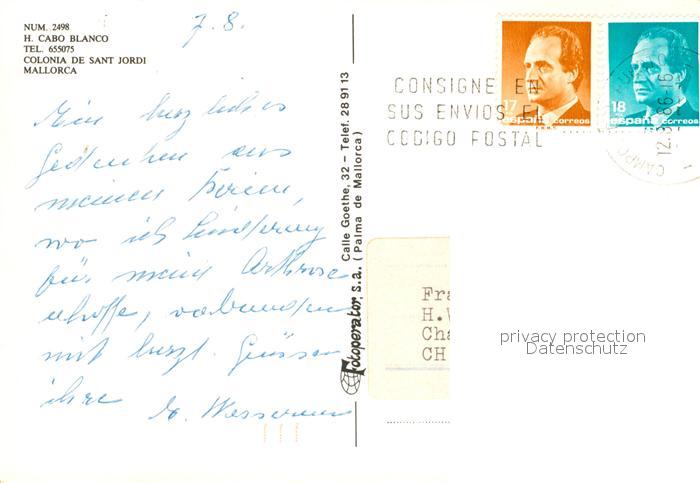 NUM. 2498
H. CABO BLANCO
TEL. 655075
COLONIA DE SANT JORDI
MALLORCA
7.8.
Mein herzliches
Gedenken aus
meinen Ferien,
wo ich Linderung
für meine Arthrose
erhoffe, verbunden
mit herzl. Grüssen
ihre
Fotoperator, S.a. Calle Goethe, 32 – Telef. 28 91 13
(Palma de Mallorca)
CONSIGNE EN
SUS ENVIOS EL
CODIGO POSTAL
17
españa correos
18
españa correos
Fra
H.W
Cha
CH
privacy protection
Datenschutz